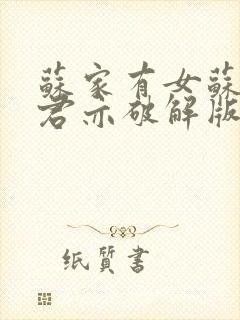 蘇家有女蘇
君亦破解版
纸質書